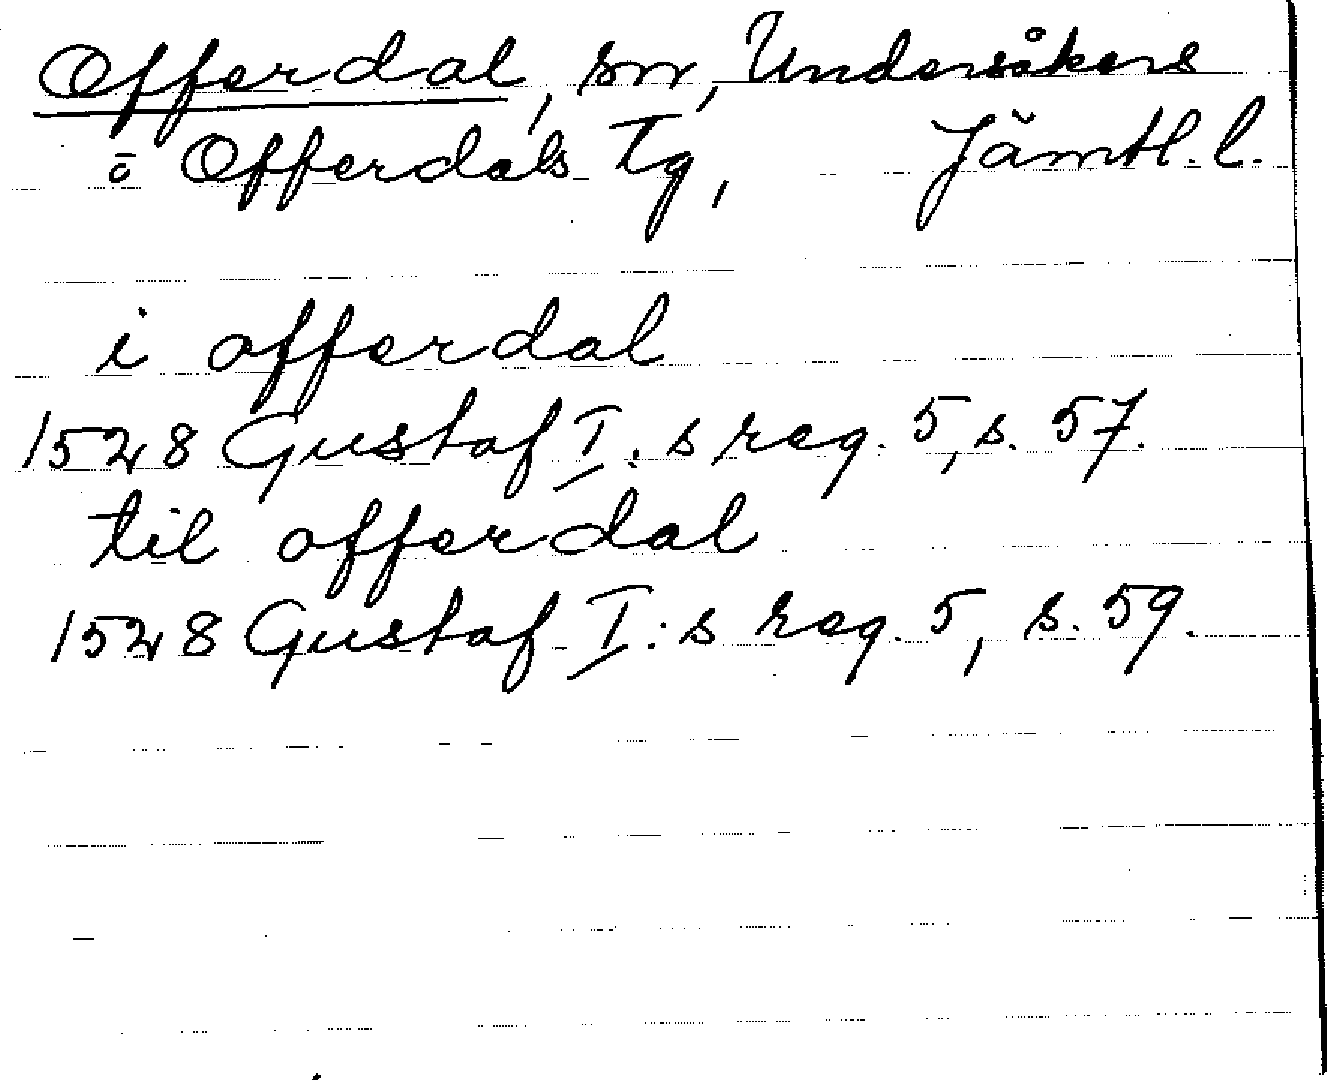 Offerdal, sn, Undersåkers
ō Offerdals Tg, Jämtl. l.
i offerdal
1528 Gustaf I:s reg. 5, s. 57.
til offerdal
1528 Gustaf I:s reg. 5, s. 59.